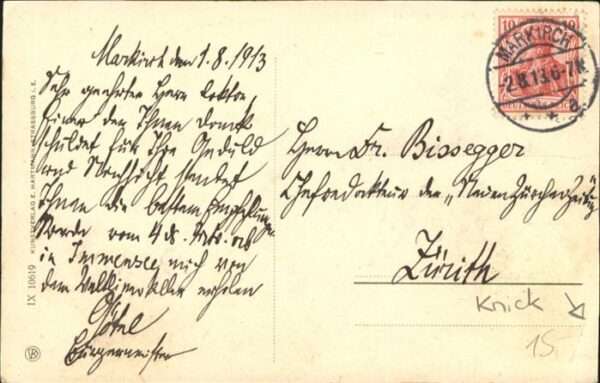 Markirch den 1.8.1913
Sehr geehrter Herr Doktor,
Einer der Ihnen Dank
schuldet für Ihre Geduld
und Nachsicht sendet
Ihnen die besten
Werde vom 4 ds. Mts. ab
in Immensee mich von
dem erholen
Bürgermeister
Herrn Dr. Bissegger
Chefredakteur der „Neuen Zürcher Zeitung
Zürich
Knick
15
IX 10619 KUNSTVERLAG E. HARTMANN STRASSBURG i. E.
10 10
MARKIRCH
-2.8.13.6-7N.
* * a
DEUTSCHES REICH